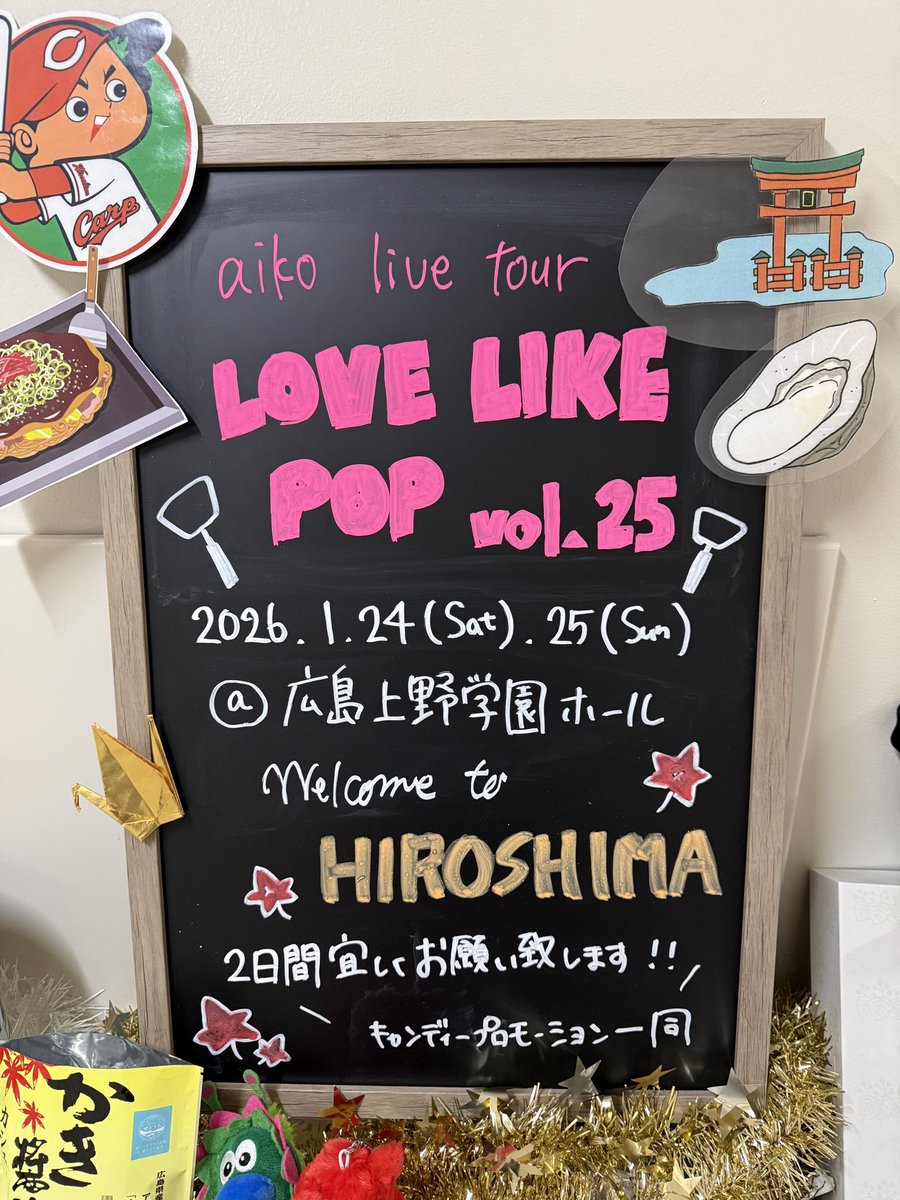 C
Carp
aiko live tour
LOVE LIKE
POP vol.25
2026.1.24(Sat).25(Sun)
@広島上野学園ホール
Welcome to
HIROSHIMA
2日間宜しくお願い致します!!
キャンディープロモーション一同
かき
醤
広島県産